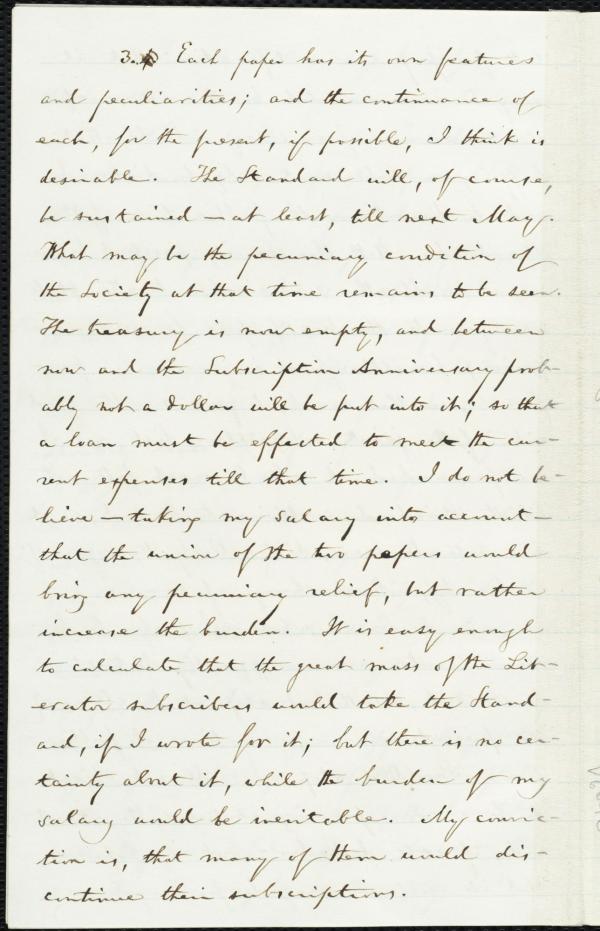 3. Each paper has its own features
and peculiarities; and the continuance of
each, for the present, if possible, I think is
desirable. The Standard will, of course,
be sustained — at least, till next May.
What may be the pecuniary condition of
the Society at that time remains to be seen.
The treasury is now empty, and between
now and the Subscription Anniversary prob-
ably not a dollar will be put into it; so that
a loan must be effected to meet the cur-
rent expenses till that time. I do not be-
lieve — taking my salary into account —
that the union of the two papers would
bring any pecuniary relief, but rather
increase the burden. It is easy enough
to calculate that the great mass of the Lib-
erator subscribers would take the Stand-
ard, if I wrote for it; but there is no cer-
tainty about it, while the burden of my
salary would be inevitable. My convic-
tion is, that many of them would dis-
continue their subscriptions.